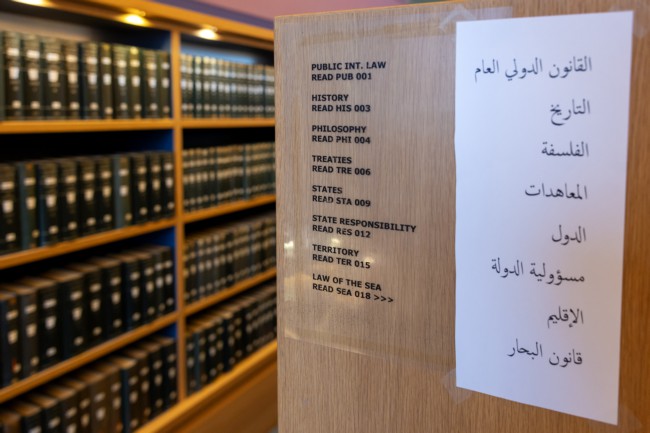 PUBLIC INT. LAW
READ PUB 001
HISTORY
READ HIS 003
PHILOSOPHY
READ PHI 004
TREATIES
READ TRE 006
STATES
READ STA 009
STATE RESPONSIBILITY
READ RES 012
TERRITORY
READ TER 015
LAW OF THE SEA
READ SEA 018 >>>
القانون الدولي العام
التاريخ
الفلسفة
المعاهدات
الدول
مسؤولية الدولة
الإقليم
قانون البحار